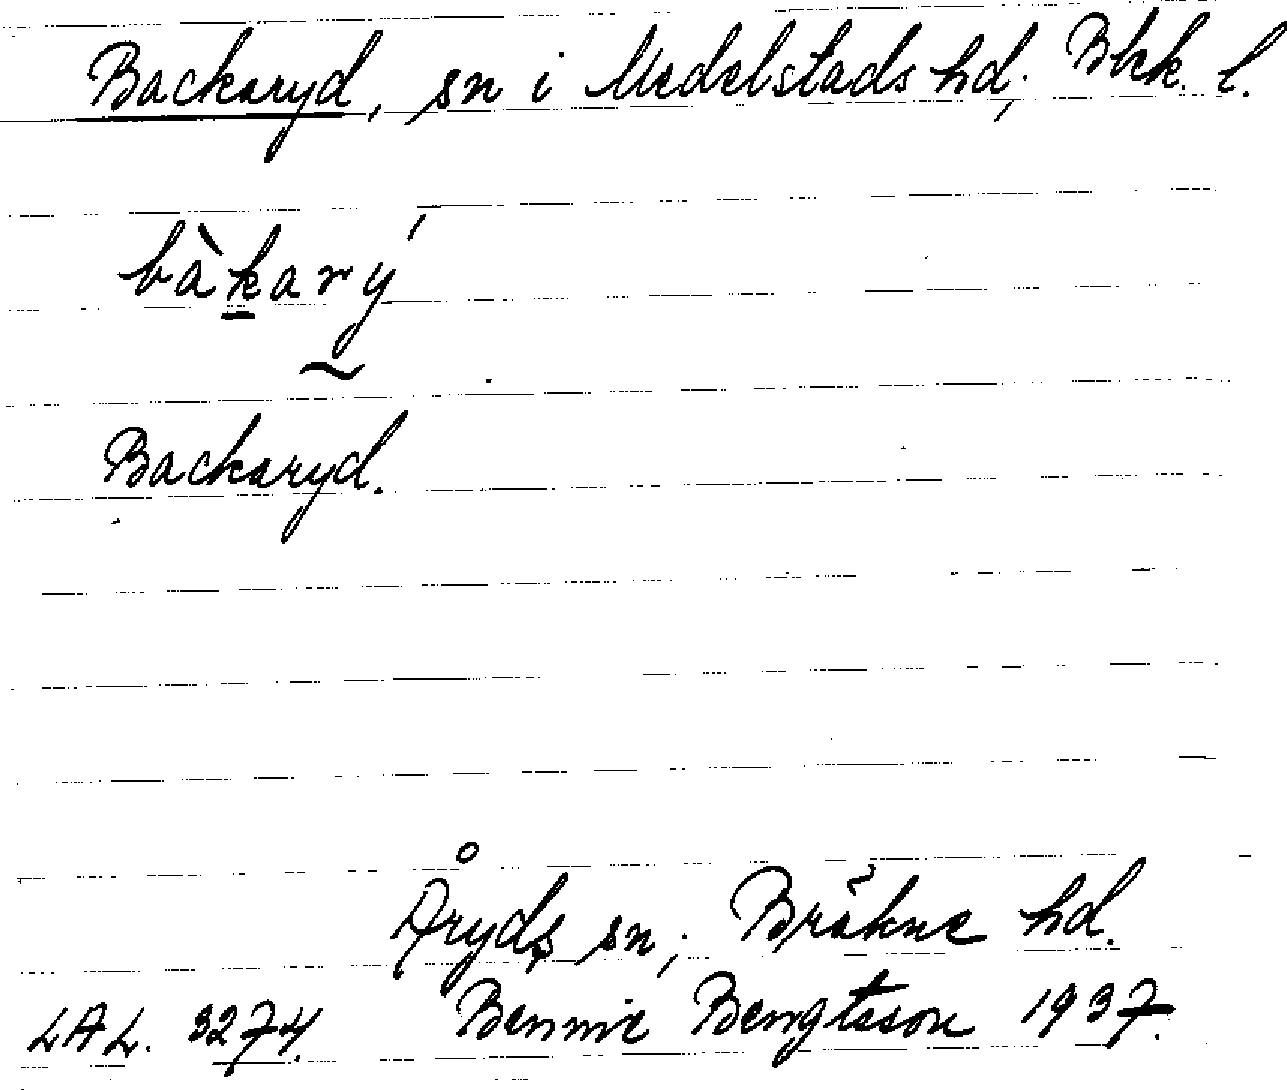 Backaryd, sn i Medelstads hd, Blek. l.
bàkarý
Backaryd.
Åryds sn; Bräkne hd.
LAL. 3274. Bennie Bengtsson 1937.